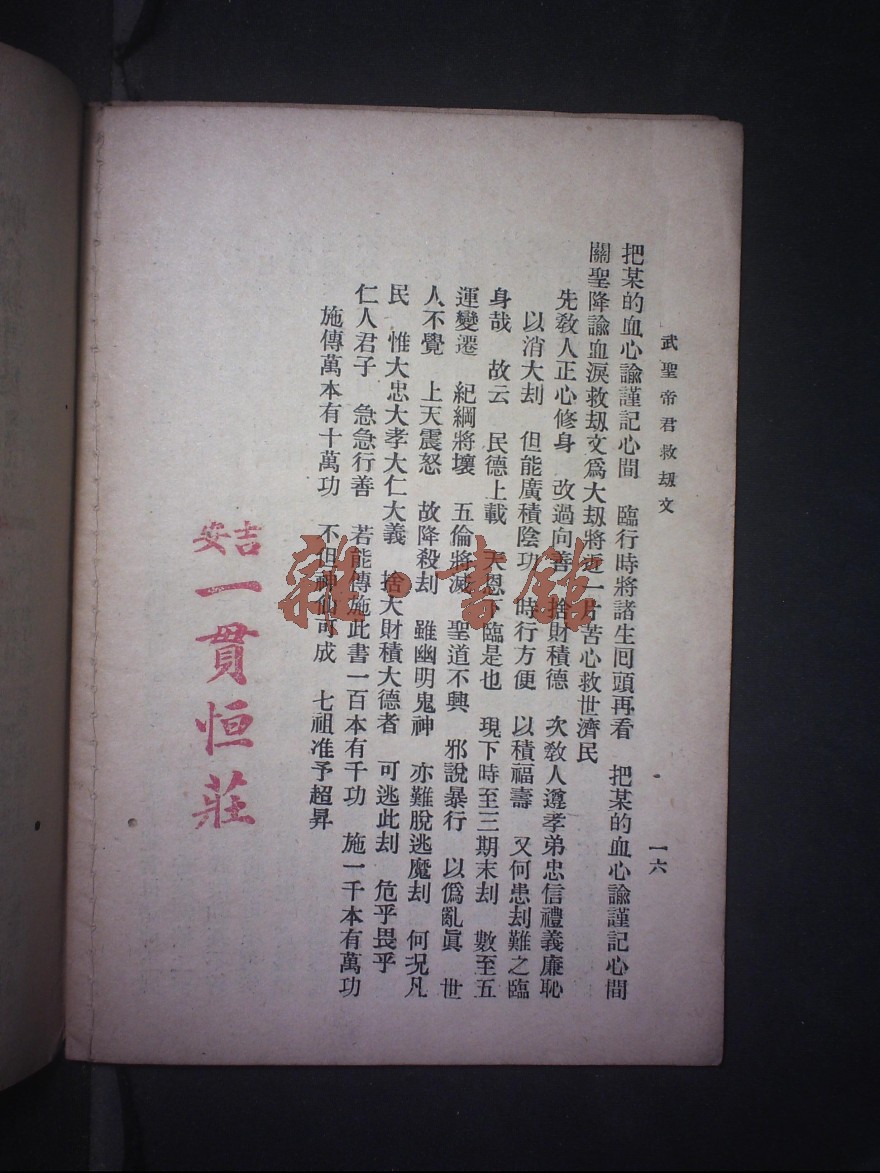 武聖帝君救刼文 一六
把某的血心諭謹記心間 臨行時將諸生囘頭再看 把某的血心諭謹記心間
關聖降諭血淚救刼文爲大刼將 一片苦心救世濟民
先敎人正心修身 改過向善 捨財積德 次敎人遵孝弟忠信禮義廉恥
以消大刦 但能廣積陰功 時行方便 以積福壽 又何患刦難之臨
身哉 故云 民德上載 天恩下臨是也 現下時至三期末刦 數至五
運變遷 紀綱將壞 五倫將滅 聖道不興 邪說暴行 以僞亂眞 世
人不覺 上天震怒 故降殺刦 雖幽明鬼神 亦難脫逃魔刦 何况凡
民 惟大忠大孝大仁大義 捨大財積大德者 可逃此刦 危乎畏乎
仁人君子 急急行善 若能傳施此書一百本有千功 施一千本有萬功
施傳萬本有十萬功 不但神仙可成 七祖准予超昇
吉安
一貫恒莊
雜·書館